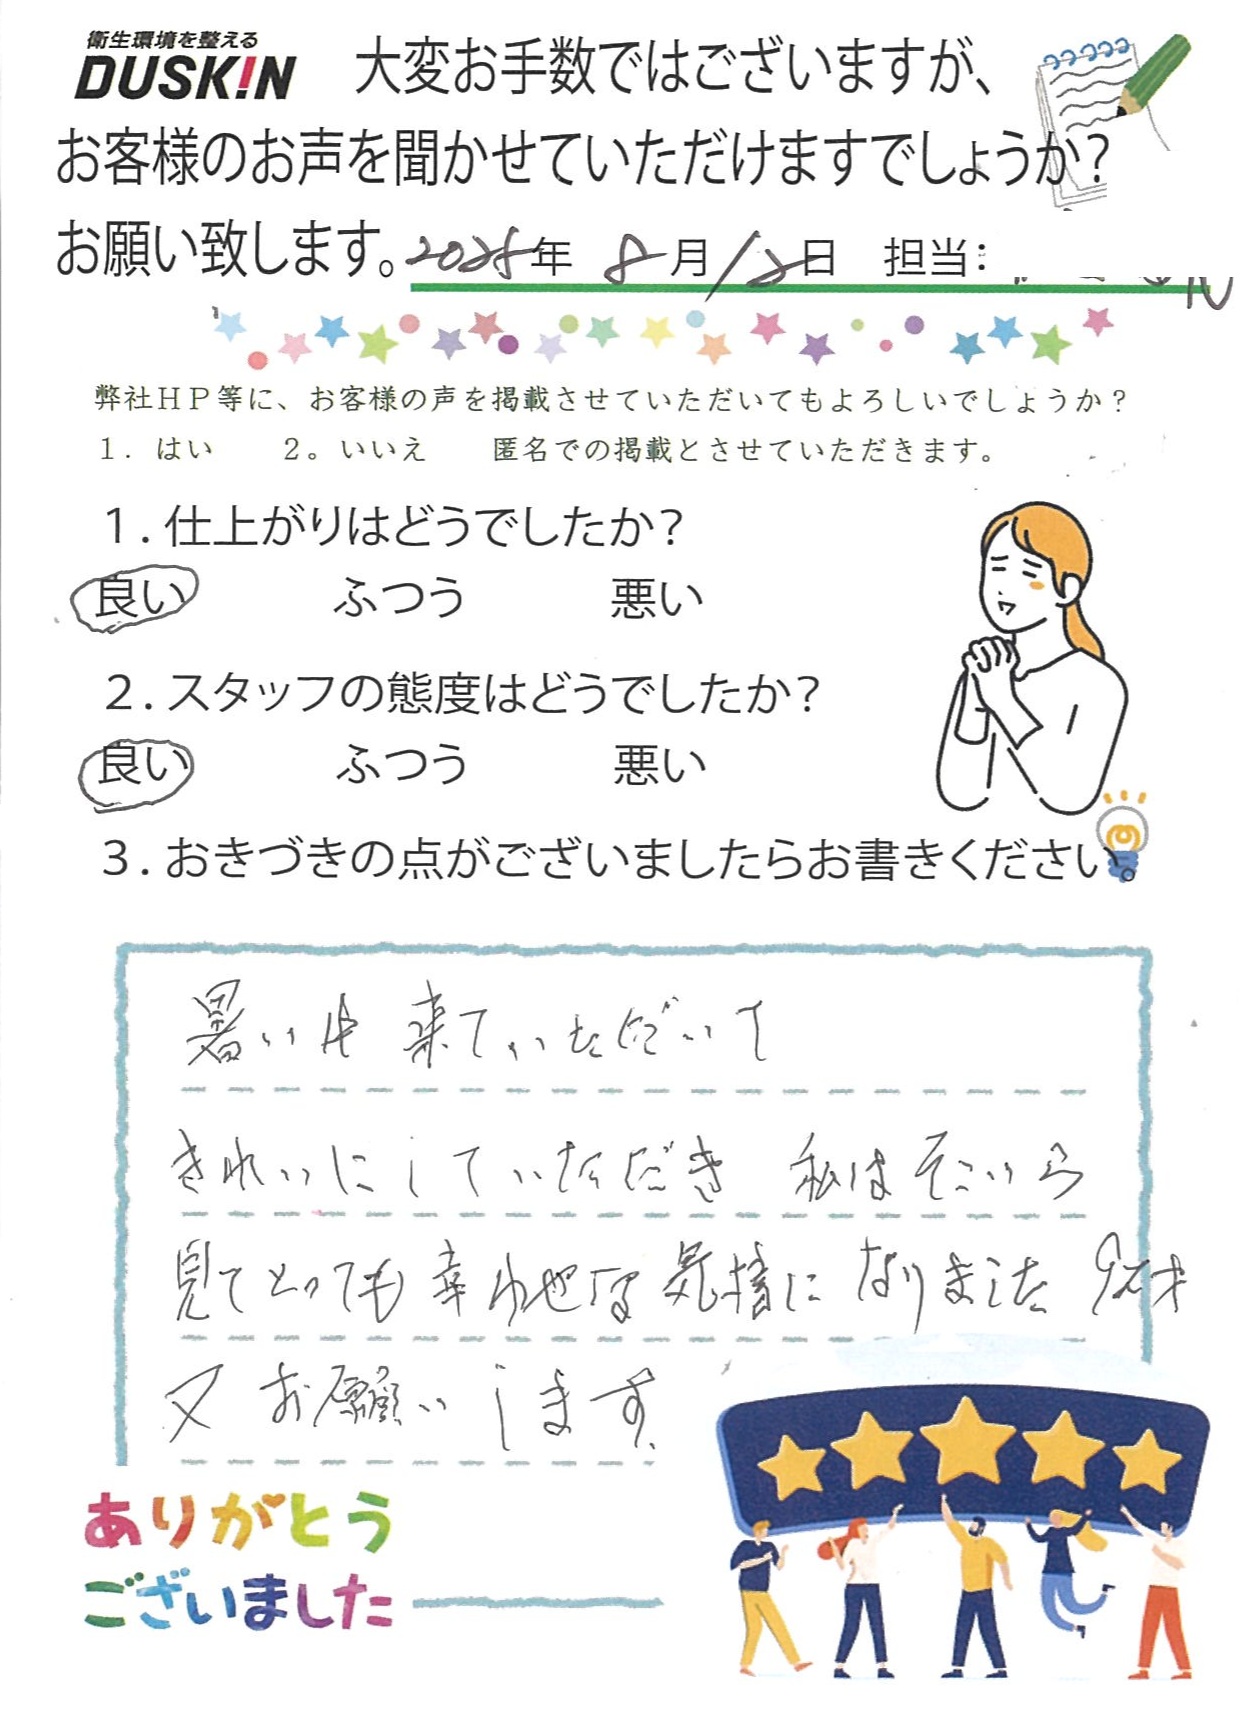 衛生環境を整える
DUSKIN 大変お手数ではございますが、
お客様のお声を聞かせていただけますでしょうか?
お願い致します。2025年 8月12日 担当:
弊社HP等に、お客様の声を掲載させていただいてもよろしいでしょうか?
1. はい 2。いいえ 匿名での掲載とさせていただきます。
1.仕上がりはどうでしたか?
良い ふつう 悪い
2.スタッフの態度はどうでしたか?
良い ふつう 悪い
3.おきづきの点がございましたらお書きください。
暑い中 来ていただいて
きれいにしていただき 私は そこいら
見てとっても幸わせな気持に なりました
又 お願いします.
ありがとう
ございました